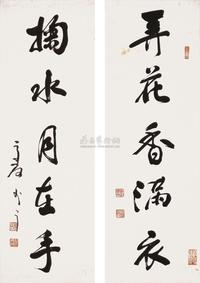 弄花香滿衣
掬水月在手